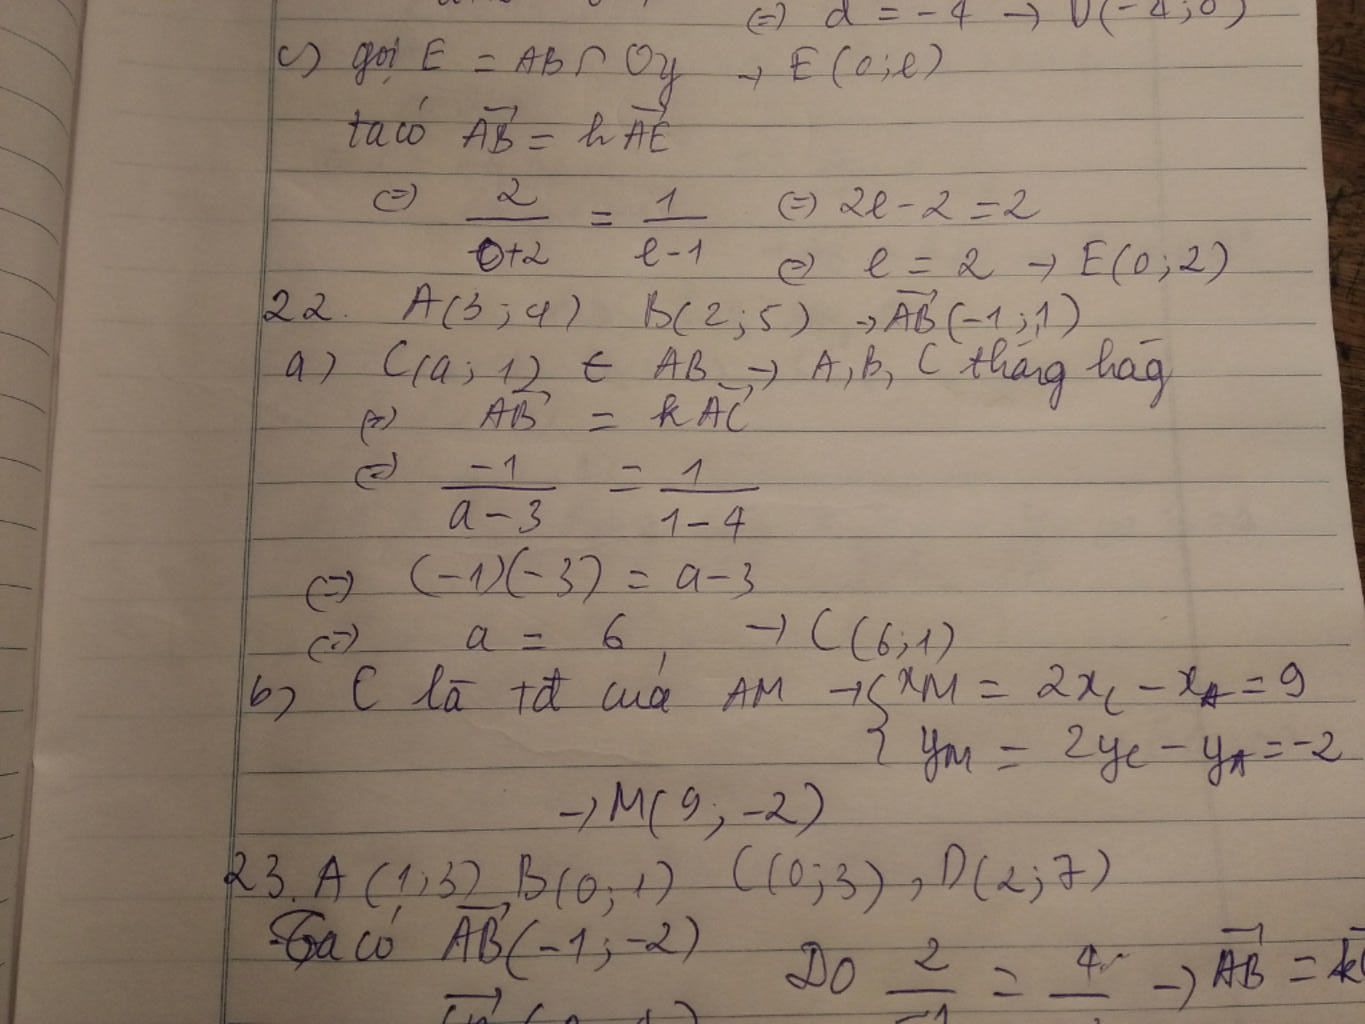 (=) d = -4 → D(-4;0)
c) gọi E = AB ∩ Oy → E(0;e)
ta có AB = k AE
(=) 2/(0+2) = 1/(e-1) (=) 2e - 2 = 2
(=) e = 2 → E(0;2)
22. A(3;4) B(2;5) → AB(-1;1)
a) C(a;1) ∈ AB → A, B, C thẳng hàg
(=) AB = k AC
(=) -1/(a-3) = 1/(1-4)
(=) (-1)(-3) = a-3
(=) a = 6, → C(6;1)
b) C là tđ của AM → { xM = 2xC - xA = 9
yM = 2yC - yA = -2
→ M(9;-2)
23. A(1;3) B(0;1) C(0;3), D(2;7)
Ta có AB(-1;-2)
Do 2/-1 = 4/ → AB = k